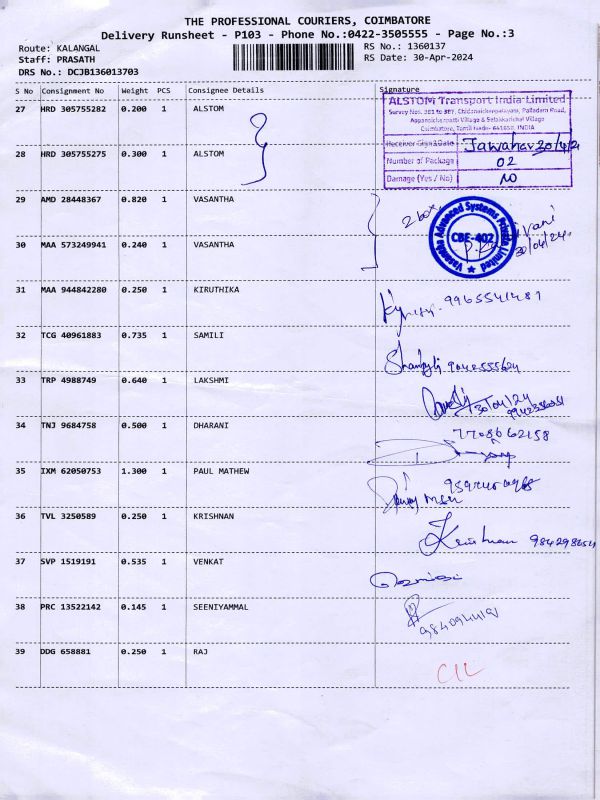 THE PROFESSIONAL COURIERS, COIMBATORE
Delivery Runsheet - P103 - Phone No.:0422-3505555 - Page No.:3
Route: KALANGAL
RS No.: 1360137
Staff: PRASATH
RS Date: 30-Apr-2024
DRS No.: DCJB136013703
S No Consignment No Weight PCS Consignee Details Signature
27 HRD 305755282 0.200 1 ALSTOM
ALSTOM Transport India Limited
Coimbatore, Tamil Nadu- 641658, INDIA
Receiver Sign & Date Jawahar 30/4/24
28 HRD 305755275 0.300 1 ALSTOM
Number of Package 02
Damage (Yes / No) NO
29 AMD 28448367 0.820 1 VASANTHA
2 box
Vasantha Advanced Systems Private Limited
CBE-402
30/04/24
30 MAA 573249941 0.240 1 VASANTHA
31 MAA 944842280 0.250 1 KIRUTHIKA
9965541487
32 TCG 40961883 0.735 1 SAMILI
9042555624
33 TRP 4988749 0.640 1 LAKSHMI
30/04/24
34 TNJ 9684758 0.500 1 DHARANI
7708662158
35 IXM 62050753 1.300 1 PAUL MATHEW
36 TVL 3250589 0.250 1 KRISHNAN
Krishnan
37 SVP 1519191 0.535 1 VENKAT
38 PRC 13522142 0.145 1 SEENIYAMMAL
39 DDG 658881 0.250 1 RAJ